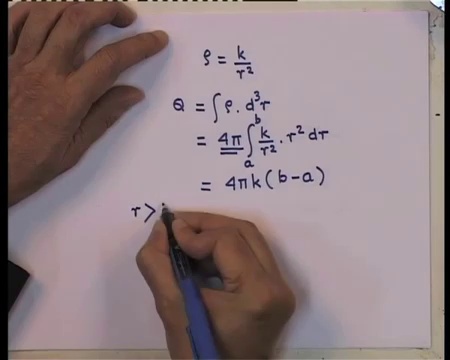 ρ = k/r²
Q = ∫ρ. d³r
= 4π ∫ₐᵇ k/r² · r² dr
= 4πk(b-a)
r >